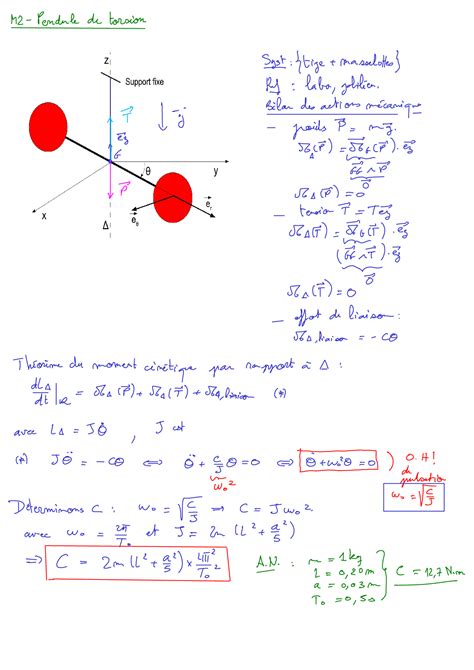 M2 - Pendule de torsion
z
Support fixe
T⃗
g⃗
e⃗z
G
θ
y
P⃗
x
Δ
e⃗θ
e⃗r
Syst : {tige + masselottes}
Rf : labo, galiléen.
Bilan des actions mécaniques
- poids P⃗ = mg⃗.
𝓜Δ(P⃗) = 𝓜⃗G(P⃗) . e⃗z
GG⃗ ∧ P⃗
0⃗
𝓜Δ(P⃗) = 0
- tension T⃗ = T e⃗z
𝓜Δ(T⃗) = 𝓜⃗G(T⃗) . e⃗z
(GG⃗ ∧ T⃗)
0⃗
𝓜Δ(T⃗) = 0
- effort de liaison :
𝓜Δ,liaison = - Cθ
Théorème du moment cinétique par rapport à Δ :
dLΔ/dt |R = 𝓜Δ(P⃗) + 𝓜Δ(T⃗) + 𝓜Δ,liaison (*)
avec LΔ = Jθ̇ , J cst
(*) Jθ̈ = - Cθ ⇔ θ̈ + C/J θ = 0 ⇔ θ̈ + ω0²θ = 0
ω0²
O.H!
de pulsation
ω0 = √(C/J)
Déterminons C : ω0 = √(C/J) ⇒ C = Jω0²
avec ω0 = 2π/T0 et J = 2m (L² + a²/5)
⇒ C = 2m (L² + a²/5) × 4π²/T0²
A.N : m = 1kg
l = 0,20m
a = 0,03m
T0 = 0,5s
C = 12,7 N.m